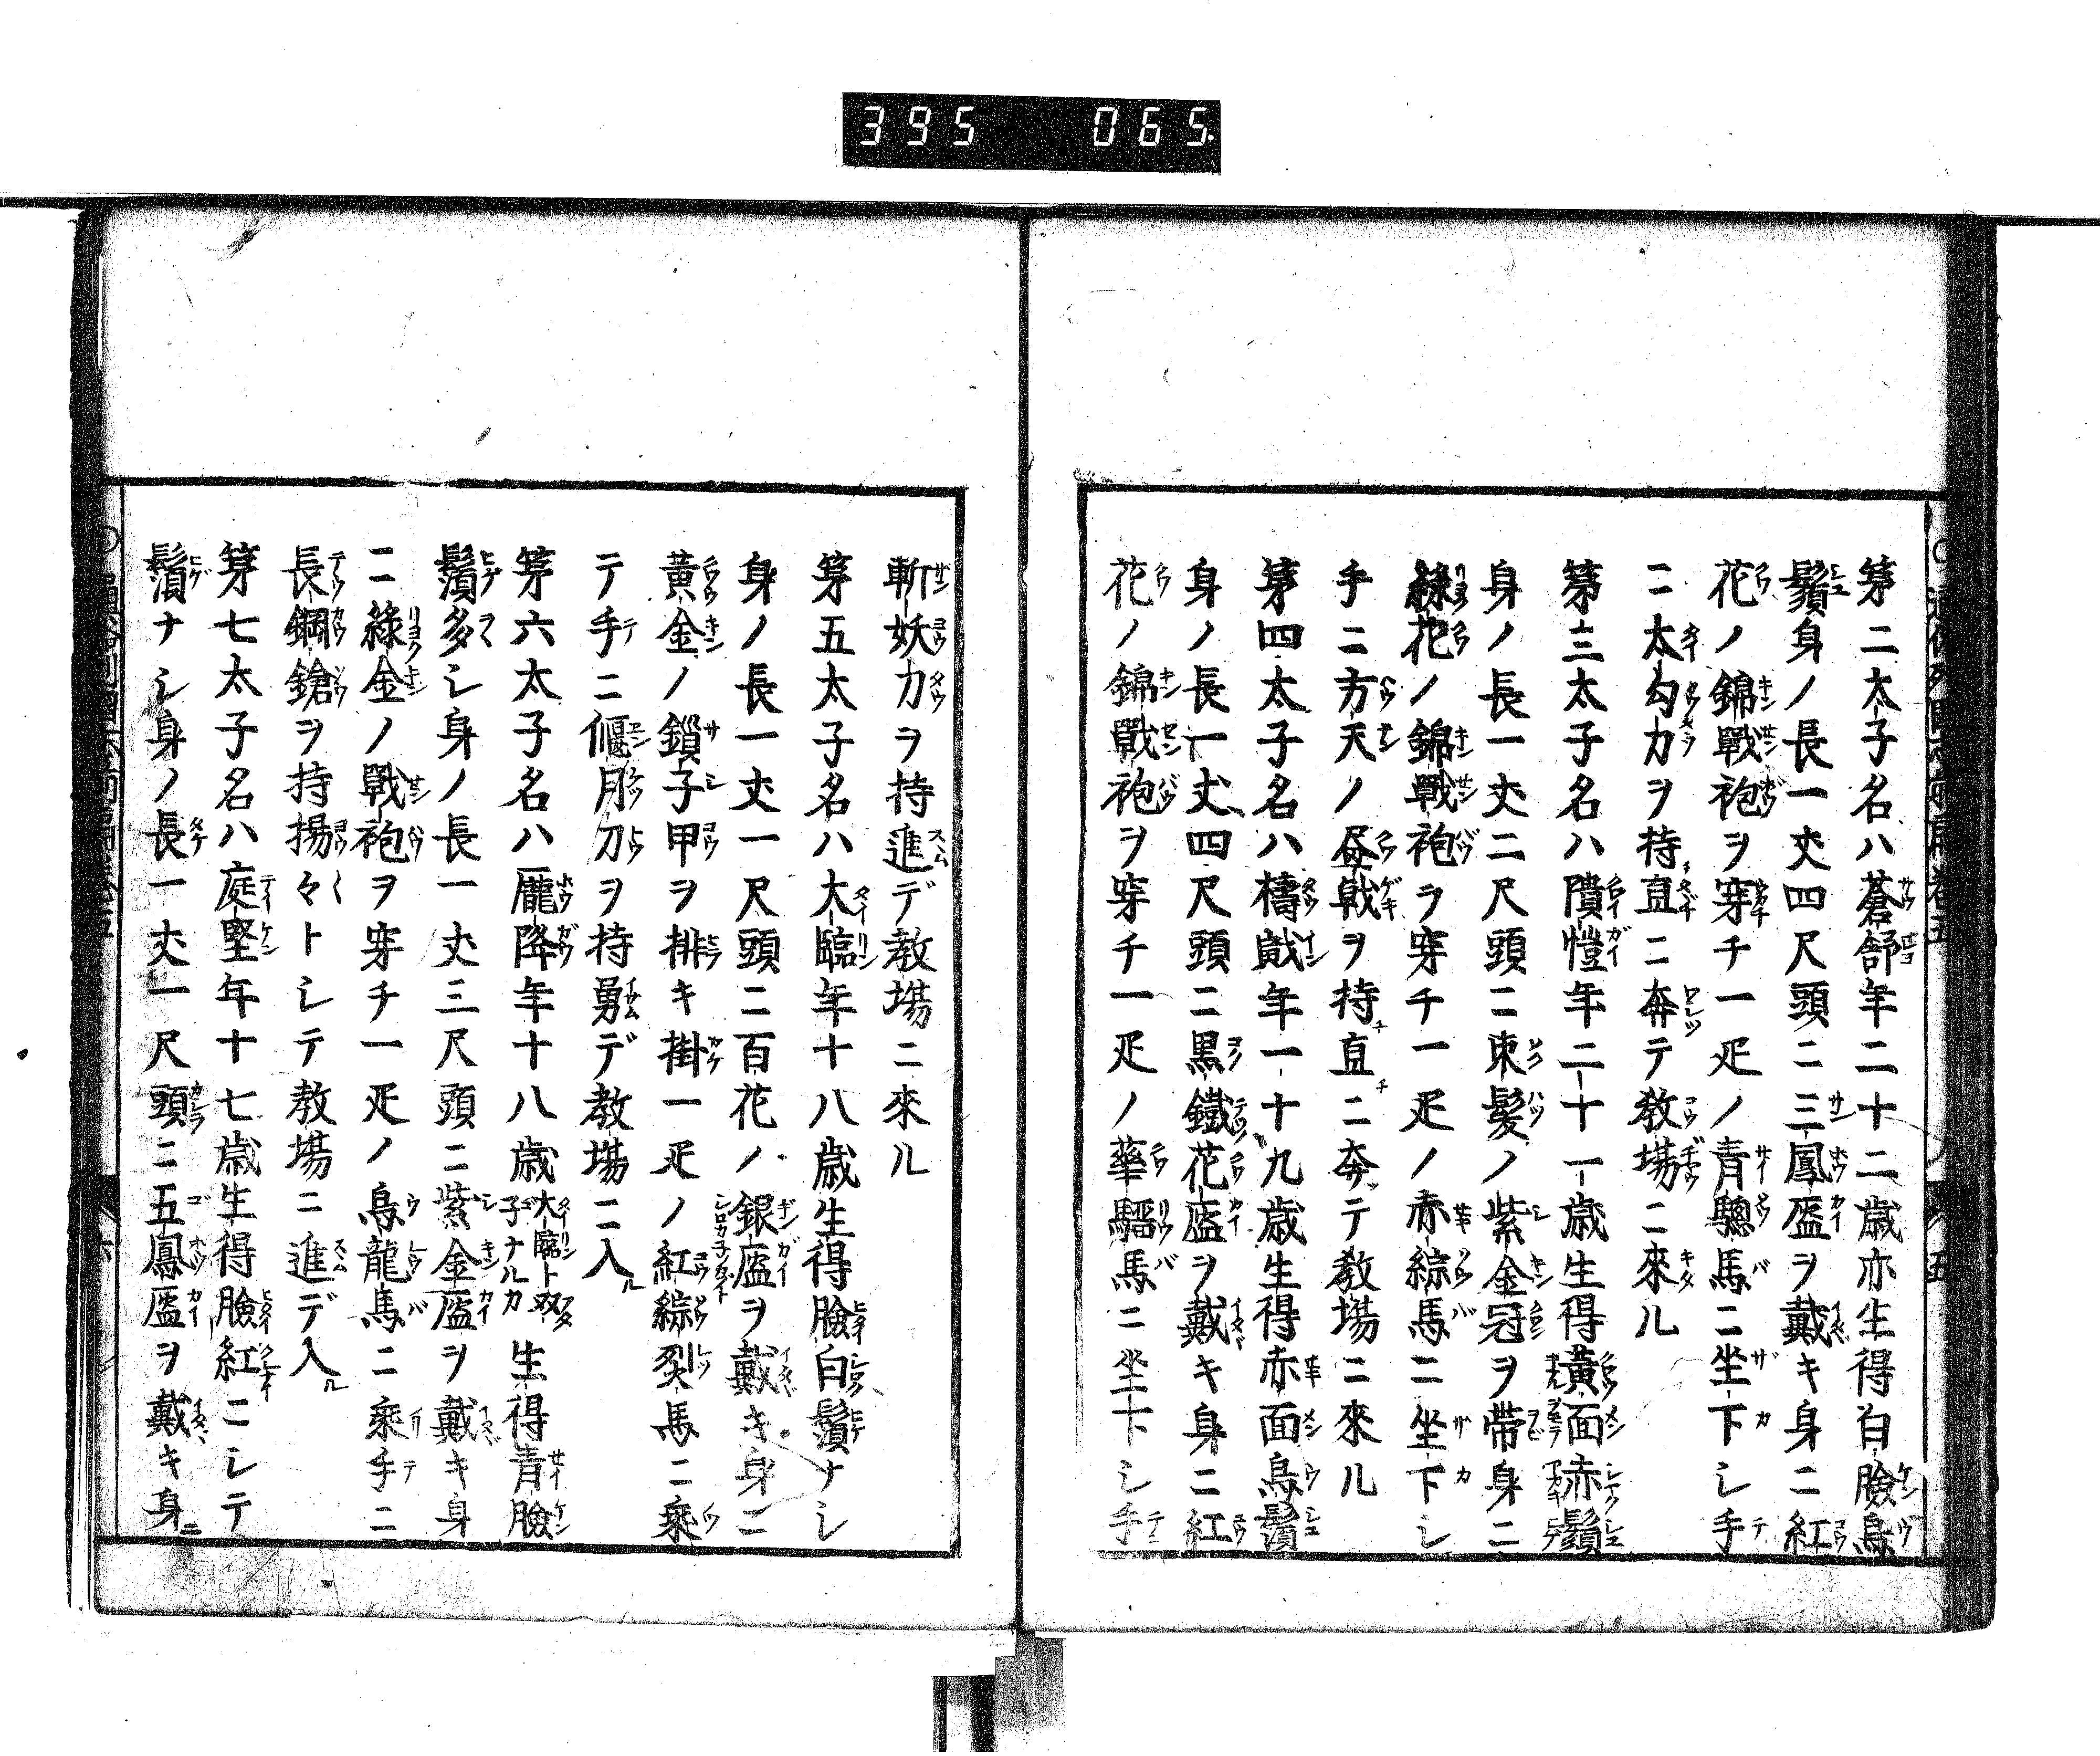 395 065
第二太子名ハ蒼舒年二十二歳亦生得白臉烏
鬚身ノ長一丈四尺頭ニ三鳳盔ヲ戴キ身ニ紅
花ノ錦戰袍ヲ穿チ一疋ノ青驄馬ニ坐下シ手
ニ太勾刀ヲ持直ニ奔テ教場ニ來ル
第三太子名ハ隤愷年二十一歳生得黄面赤鬚
身ノ長一丈二尺頭ニ束髪ノ紫金冠ヲ帯身ニ
緑花ノ錦戰袍ヲ穿チ一疋ノ赤綜馬ニ坐下シ
手ニ方天ノ畫戟ヲ持直ニ奔テ教場ニ來ル
第四太子名ハ檮戭年一十九歳生得赤面烏鬚
身ノ長一丈四尺頭ニ黒鐵花盔ヲ戴キ身ニ紅
花ノ錦戰袍ヲ穿チ一疋ノ華騮馬ニ坐下シ手
斬妖刀ヲ持進デ教場ニ來ル
第五太子名ハ大臨年十八歳生得臉白鬚ナシ
身ノ長一丈一尺頭ニ百花ノ銀盔ヲ戴キ身ニ
黄金ノ鎖子甲ヲ排キ掛一疋ノ紅綜烈馬ニ乘
テ手ニ偃月刀ヲ持勇デ教場ニ入ル
第六太子名ハ龐降年十八歳大臨ト双子ナルカ生得青臉
鬚多シ身ノ長一丈三尺頭ニ紫金盔ヲ戴キ身
ニ緑金ノ戰袍ヲ穿チ一疋ノ烏龍馬ニ乘手ニ
長鋼鎗ヲ持揚々トシテ教場ニ進デ入ル
第七太子名ハ庭堅年十七歳生得臉紅ニシテ
鬚ナシ身ノ長一丈一尺頭ニ五鳳盔ヲ戴キ身ニ